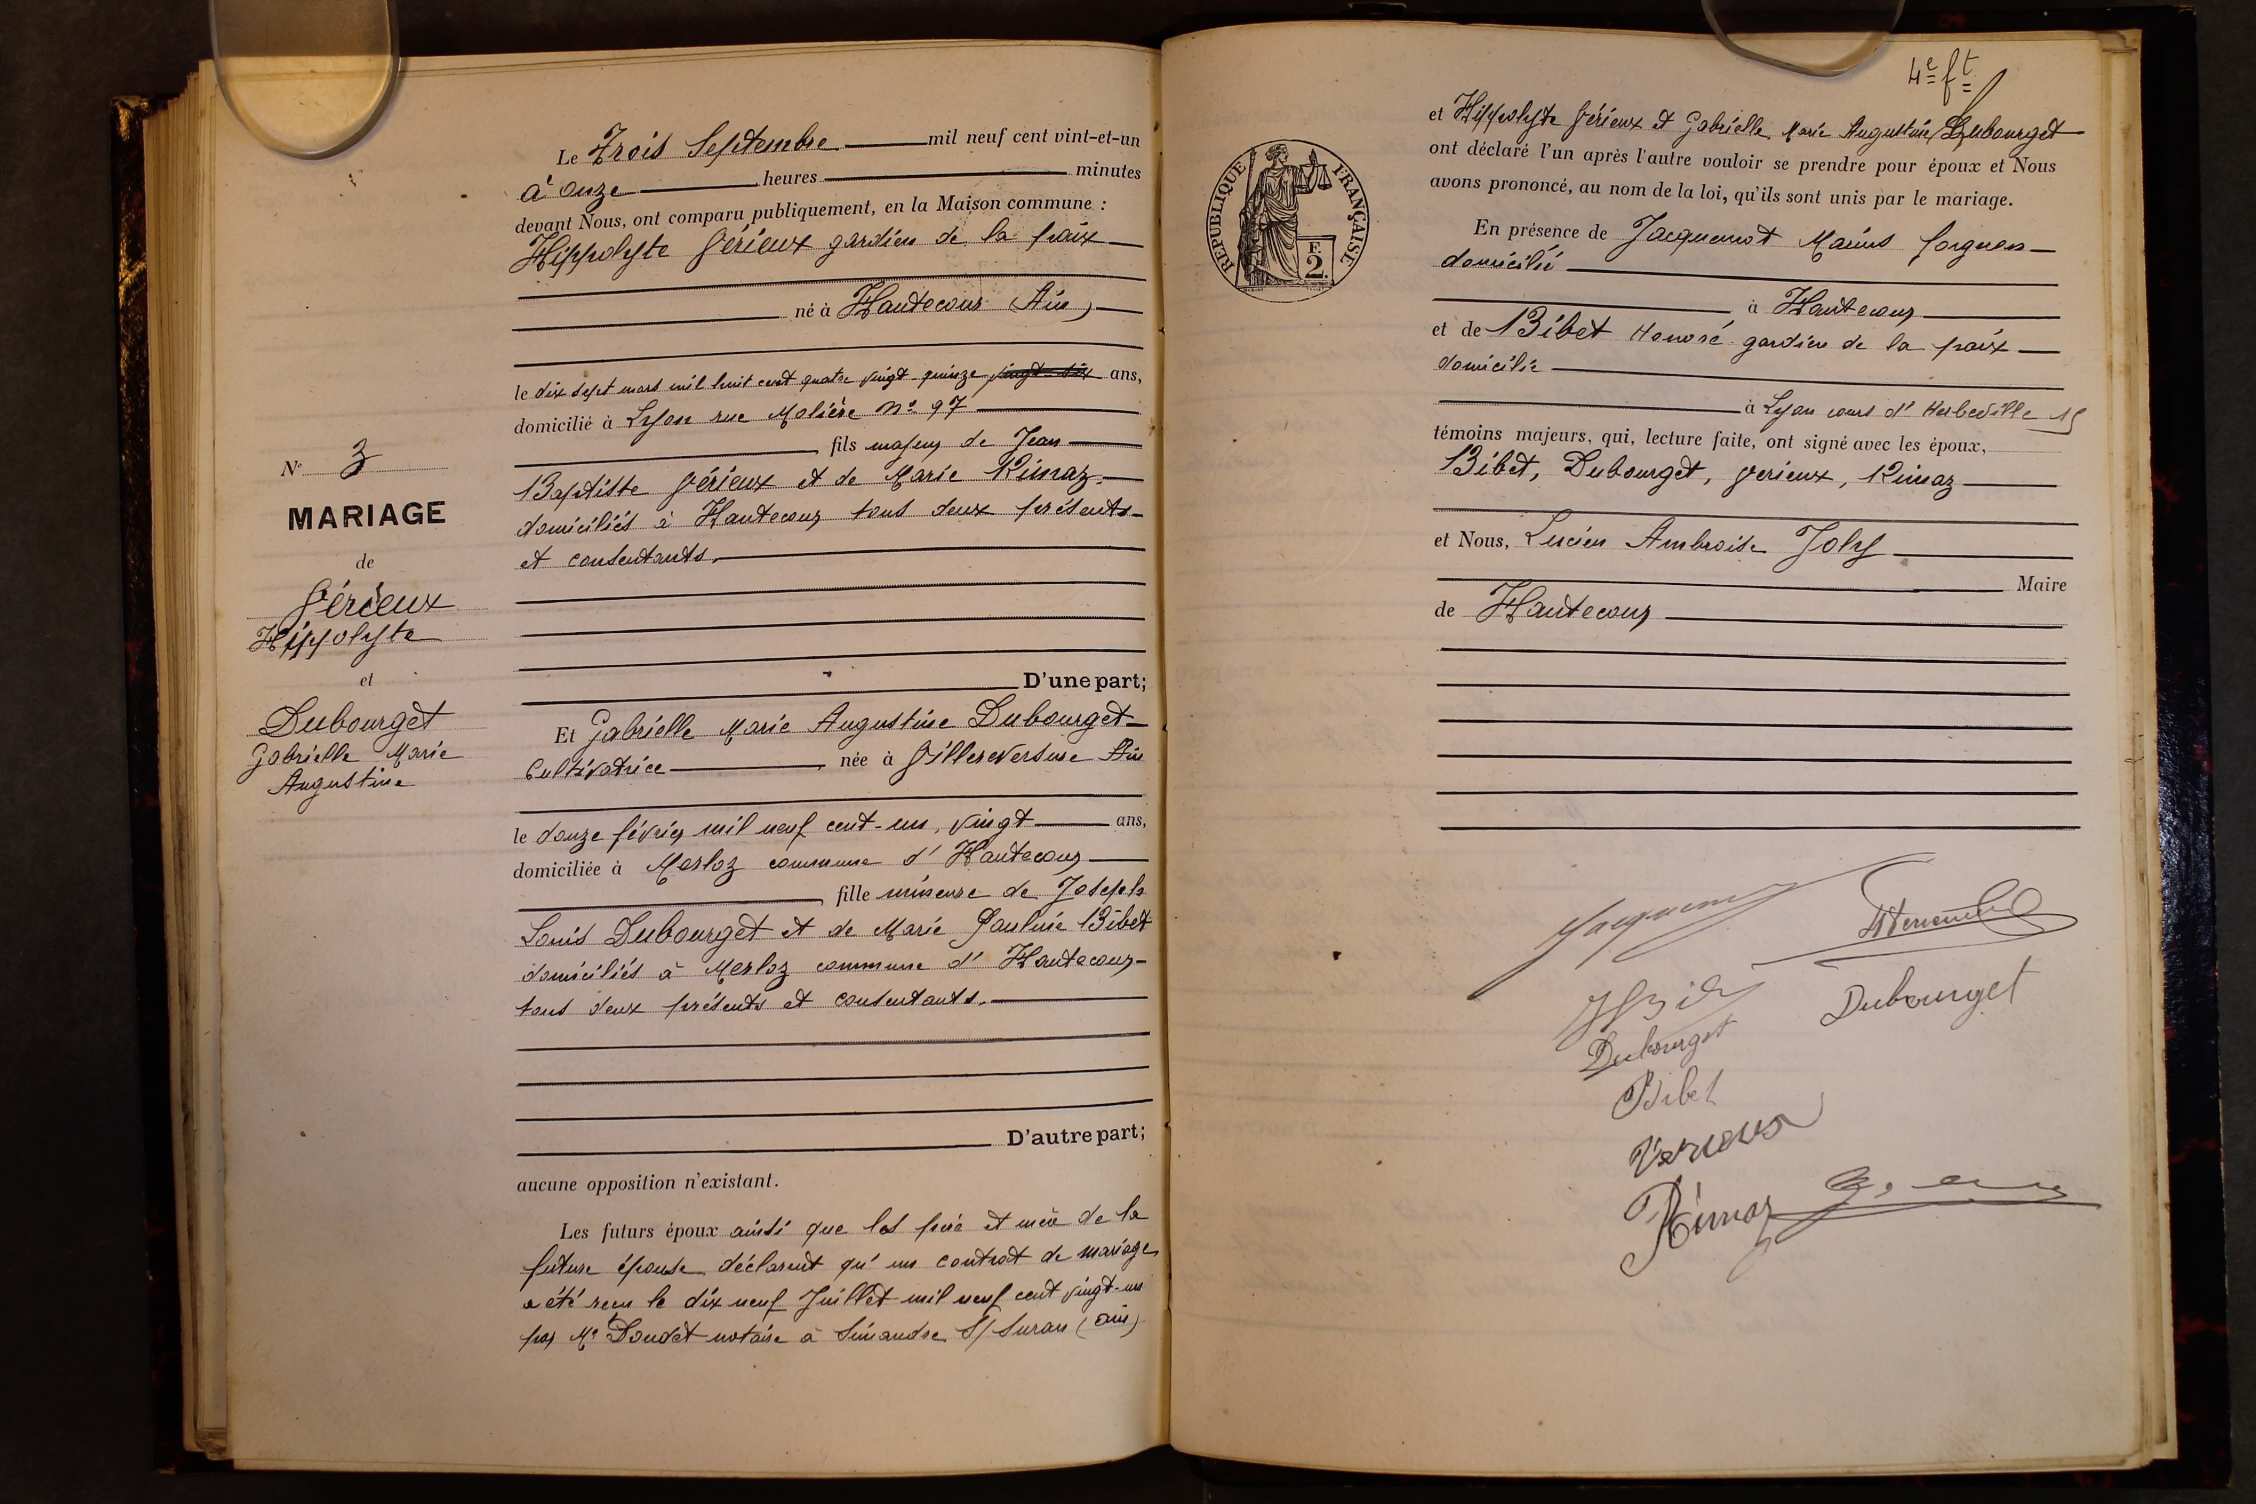 Le Trois Septembre mil neuf cent vint-et-un
à onze heures minutes
devant Nous, ont comparu publiquement, en la Maison commune :
Hippolyte Vérieux gardien de la paix
né à Hautecour (Ain)
le dix sept mars mil huit cent quatre vingt quinze vingt-six ans,
domicilié à Lyon rue Molière No 97
fils majeur de Jean
Baptiste Vérieux et de Marie Rimaz
domiciliés à Hautecour tous deux présents
et consentants.
D'une part;
No 3
MARIAGE
de
Vérieux
Hippolyte
et
Dubourget
Gabrielle Marie
Augustine
Et Gabrielle Marie Augustine Dubourget
Cultivatrice née à Villereversure Ain
le douze février mil neuf cent-un, vingt ans,
domiciliée à Merloz commune d'Hautecour
fille mineure de Joseph
Louis Dubourget et de Marie Pauline Bibet
domiciliés à Merloz commune d'Hautecour
tous deux présents et consentants.
D'autre part;
aucune opposition n'existant.
Les futurs époux ainsi que les père et mère de la
future épouse déclarent qu'un contrat de mariage
a été reçu le dix neuf Juillet mil neuf cent vingt-un
par Me notaire à Simandre S/ Suran (Ain)
4e ft
et Hippolyte Vérieux et Gabrielle Marie Augustine Dubourget
ont déclaré l'un après l'autre vouloir se prendre pour époux et Nous
avons prononcé, au nom de la loi, qu'ils sont unis par le mariage.
RÉPUBLIQUE FRANÇAISE
F.
2
En présence de Jacquemot Marius
domicilié
à Hautecour
et de Bibet Honoré gardien de la paix
domicilié
à Lyon cours d'Herbouville 15
témoins majeurs, qui, lecture faite, ont signé avec les époux,
Bibet, Dubourget, Verieux, Rimaz
et Nous, Lucien Ambroise Joly
Maire
de Hautecour
Jacquemot
Dubourget
Dubourget
Bibet
Verieux
Rimaz